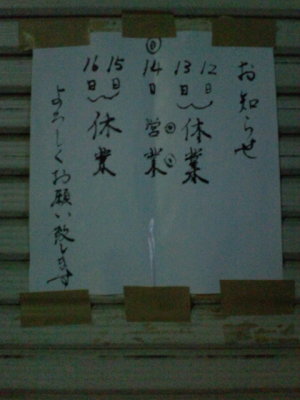 お知らせ
12日
13日
休業
14日 営業
15日
16日
休業
よろしくお願い致します